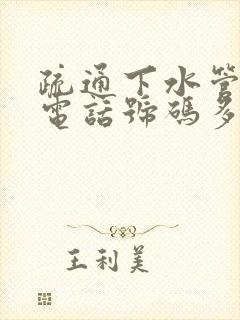 疏通下水管
電話號碼多
王利美